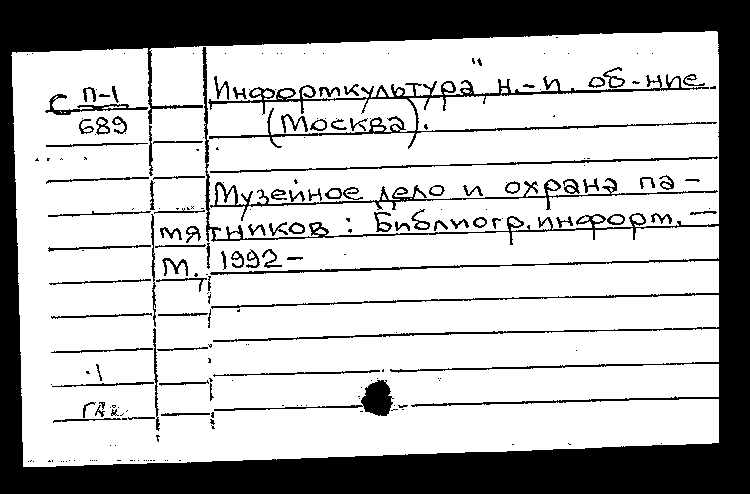 С П-1
689
Информкультура", н.-и. об-ние
(Москва).
Музейное дело и охрана па-
мятников : Библиогр. информ. —
М., 1992 –